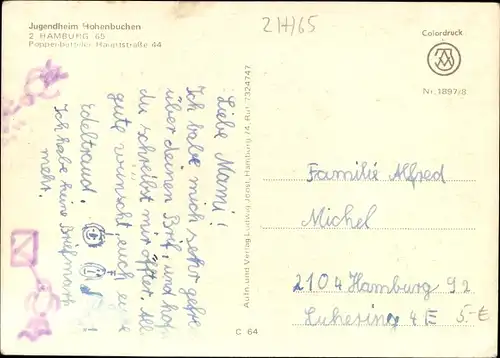 Jugendheim Hohenbuchen
2 HAMBURG 65
Poppenbütteler Hauptstraße 44
2H/65
Colordruck
Nr. 1897/8
Liebe Mami!
Ich habe mich sehr gefre
über deinen Brief, und hof
du schreibst mir öfter. All
gute wünscht euch eure
Edeltraud.
Ich habe keine Briefmark
mehr.
Aufn. und Verlag Ludwig Joost, Hamburg 74, Ruf: 7324747
C 64
Familie Alfred
Michel
2104 Hamburg 92
5.-€